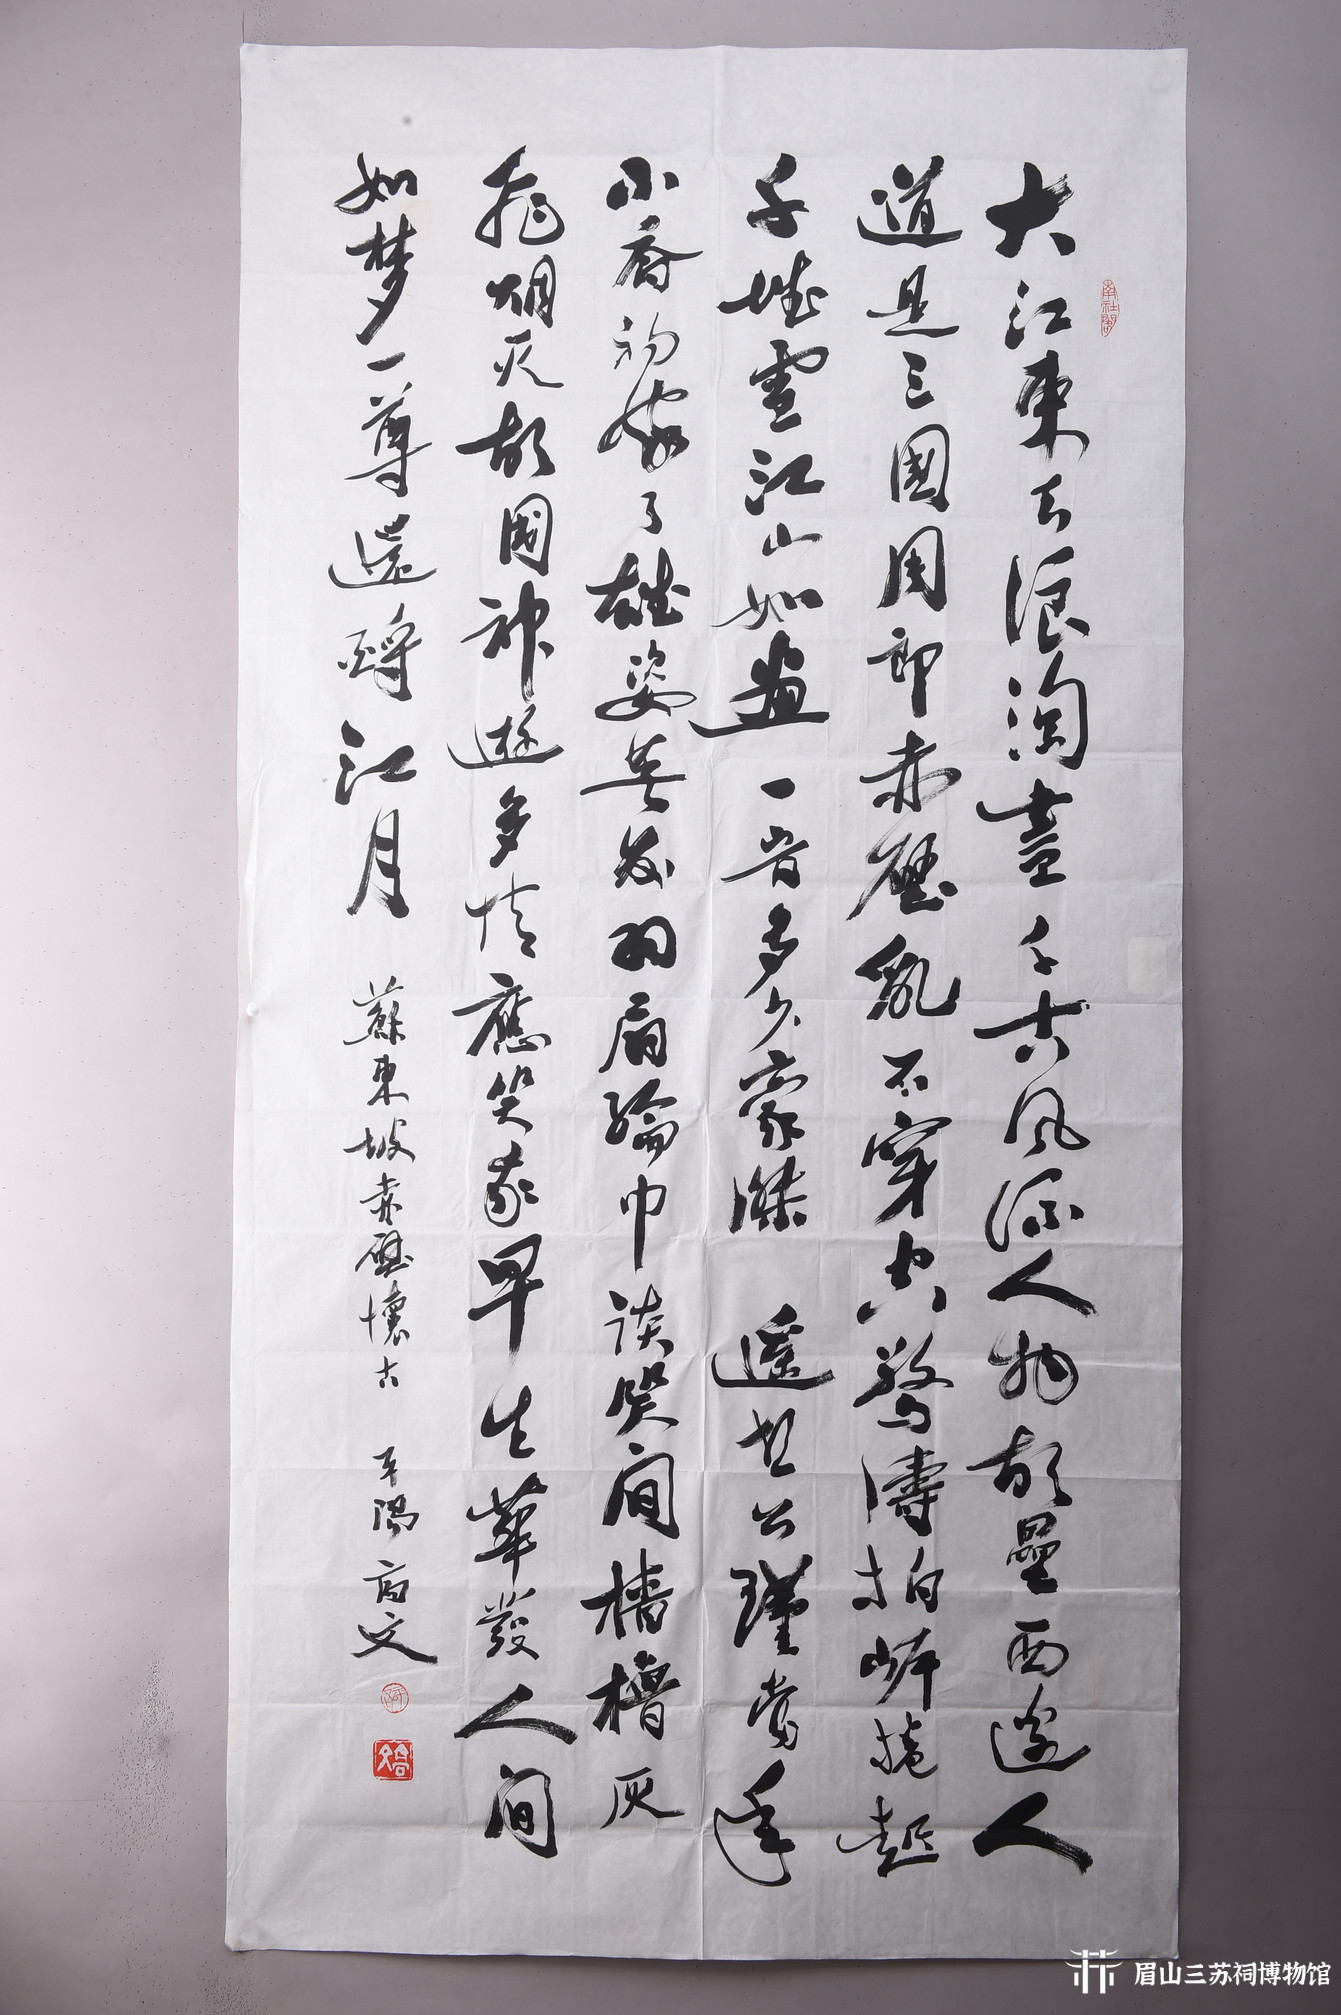 大江東去浪淘盡千古風流人物故壘西邊人
道是三國周郎赤壁亂石穿空驚濤拍岸捲起
千堆雪江山如畫一旹多少豪傑 遙想公瑾當年
小喬初嫁了雄姿英发羽扇綸巾談笑间檣櫓灰
飛烟灭故國神遊多情應笑我早生華發人间
如梦一尊還酹江月 蘇東坡赤壁懷古 平陽高文
眉山三苏祠博物馆